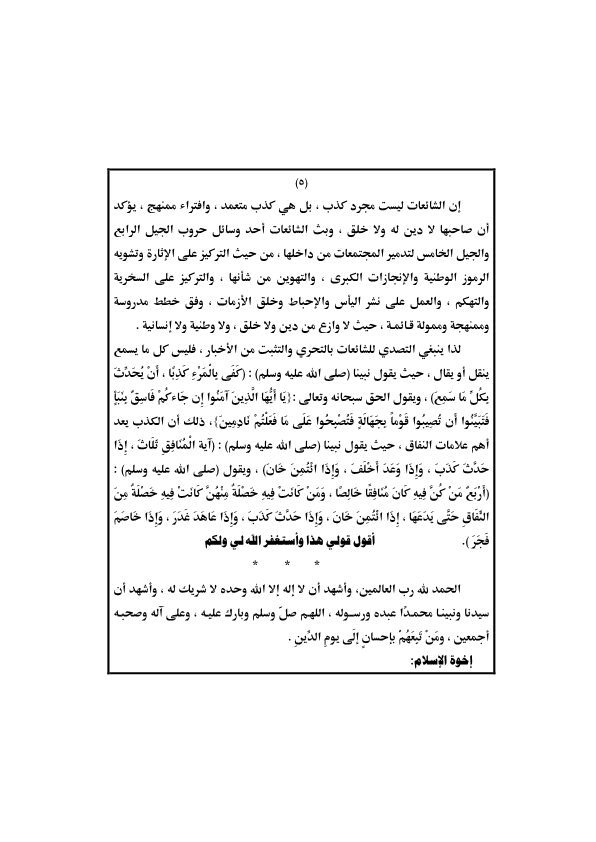 (٥)
إن الشائعات ليست مجرد كذب ، بل هي كذب متعمد ، وافتراء ممنهج ، يؤكد
أن صاحبها لا دين له ولا خلق ، وبث الشائعات أحد وسائل حروب الجيل الرابع
والجيل الخامس لتدمير المجتمعات من داخلها ، من حيث التركيز على الإثارة وتشويه
الرموز الوطنية والإنجازات الكبرى ، والتهوين من شأنها ، والتركيز على السخرية
والتهكم ، والعمل على نشر اليأس والإحباط وخلق الأزمات ، وفق خطط مدروسة
وممنهجة وممولة قائمة ، حيث لا وازع من دين ولا خلق ، ولا وطنية ولا إنسانية .
لذا ينبغي التصدي للشائعات بالتحري والتثبت من الأخبار ، فليس كل ما يسمع
ينقل أو يقال ، حيث يقول نبينا (صلى الله عليه وسلم) : (كَفَى بِالْمَرْءِ كَذِبًا ، أَنْ يُحَدِّثَ
بِكُلِّ مَا سَمِعَ) ، ويقول الحق سبحانه وتعالى :{يَا أَيُّهَا الَّذِينَ آمَنُوا إِن جَاءكُمْ فَاسِقٌ بِنَبَأٍ
فَتَبَيَّنُوا أَن تُصِيبُوا قَوْماً بِجَهَالَةٍ فَتُصْبِحُوا عَلَى مَا فَعَلْتُمْ نَادِمِينَ}، ذلك أن الكذب يعد
أهم علامات النفاق ، حيث يقول نبينا (صلى الله عليه وسلم) : (آية الْمُنَافِقِ ثَلَاثَ ، إِذَا
حَدَّثَ كَذَبَ ، وَإِذَا وَعَدَ أَخْلَفَ ، وَإِذَا ائْتُمِنَ خَانَ) ، ويقول (صلى الله عليه وسلم) :
(أَرْبَعٌ مَنْ كُنَّ فِيهِ كَانَ مُنَافِقًا خَالِصًا ، وَمَنْ كَانَتْ فِيهِ خَصْلَةٌ مِنْهُنَّ كَانَتْ فِيهِ خَصْلَةٌ مِنَ
النِّفَاقِ حَتَّى يَدَعَهَا ، إِذَا ائْتُمِنَ خَانَ ، وَإِذَا حَدَّثَ كَذَبَ ، وَإِذَا عَاهَدَ غَدَرَ ، وَإِذَا خَاصَمَ
فَجَرَ ). أقول قولي هذا وأستغفر الله لي ولكم
* * *
الحمد لله رب العالمين، وأشهد أن لا إله إلا الله وحده لا شريك له ، وأشهد أن
سيدنا ونبينا محمدًا عبده ورسوله ، اللهم صلّ وسلم وبارك عليه ، وعلى آله وصحبه
أجمعين ، ومَنْ تَبعَهُمْ بإحسانٍ إلَى يومِ الدِّينِ .
إخوة الإسلام: